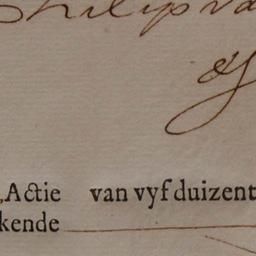 Philips va
&
Actie van vyf duizent
kende